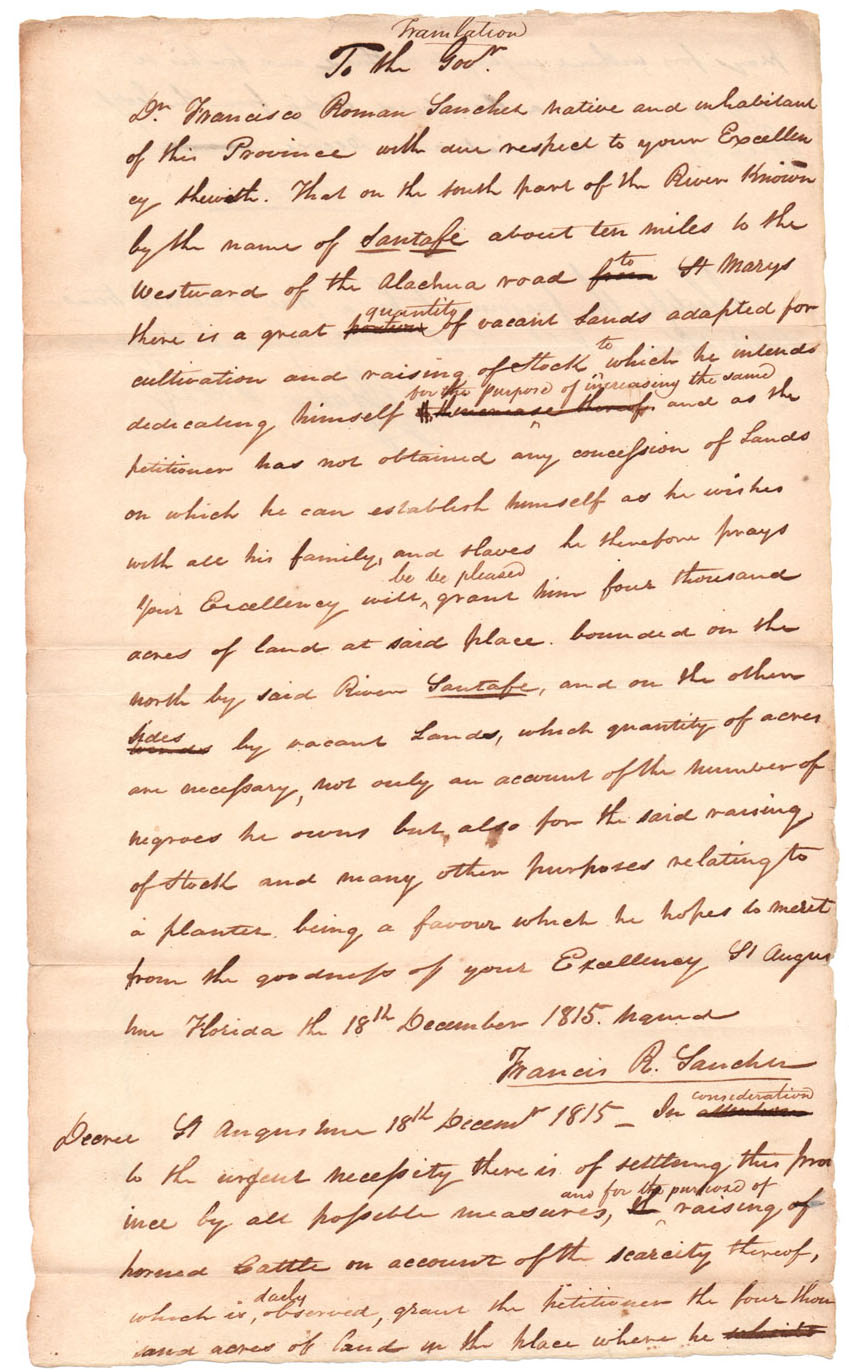 Translation
To the Govr.
Dn. Francisco Roman Sanchez native and inhabitant
of this Province with due respect to your Excellen
cy sheweth. That on the south part of the River Known
by the name of Santafe about ten miles to the
Westward of the Alachua road from to St Marys
there is a great portion quantity of vacant Lands adapted for
cultivation and raising of Stock to which he intends
for the purpose of increasing the same
dedicating himself & thereof and as the
petitioner has not obtained any concession of Lands
on which he can establish himself as he wishes
with all his family, and slaves he therefore prays
be be pleased
Your Excellency will, grant him four thousand
acres of land at said place. bounded on the
north by said River Santafe, and on the other
sides
by vacant Lands, which quantity of acres
are necessary, not only on account of the number of
negroes he owns but also for the said raising
of Stock and many other purposes relating to
a planter. being a favour which he hopes to merit
from the goodness of your Excellency St Augus
tine Florida the 18th December 1815. signed
Francis R. Sanchez
consideration
Decree St Augustine 18th Decemr 1815 _ In attention
to the urgent necessity there is of settling this prov
and for the purpose of
ince by all possible measures, raising of
horned Cattle on account of the scarcity thereof,
daily
which is, observed, grant the petitioner the four thou
sand acres of land in the place where he